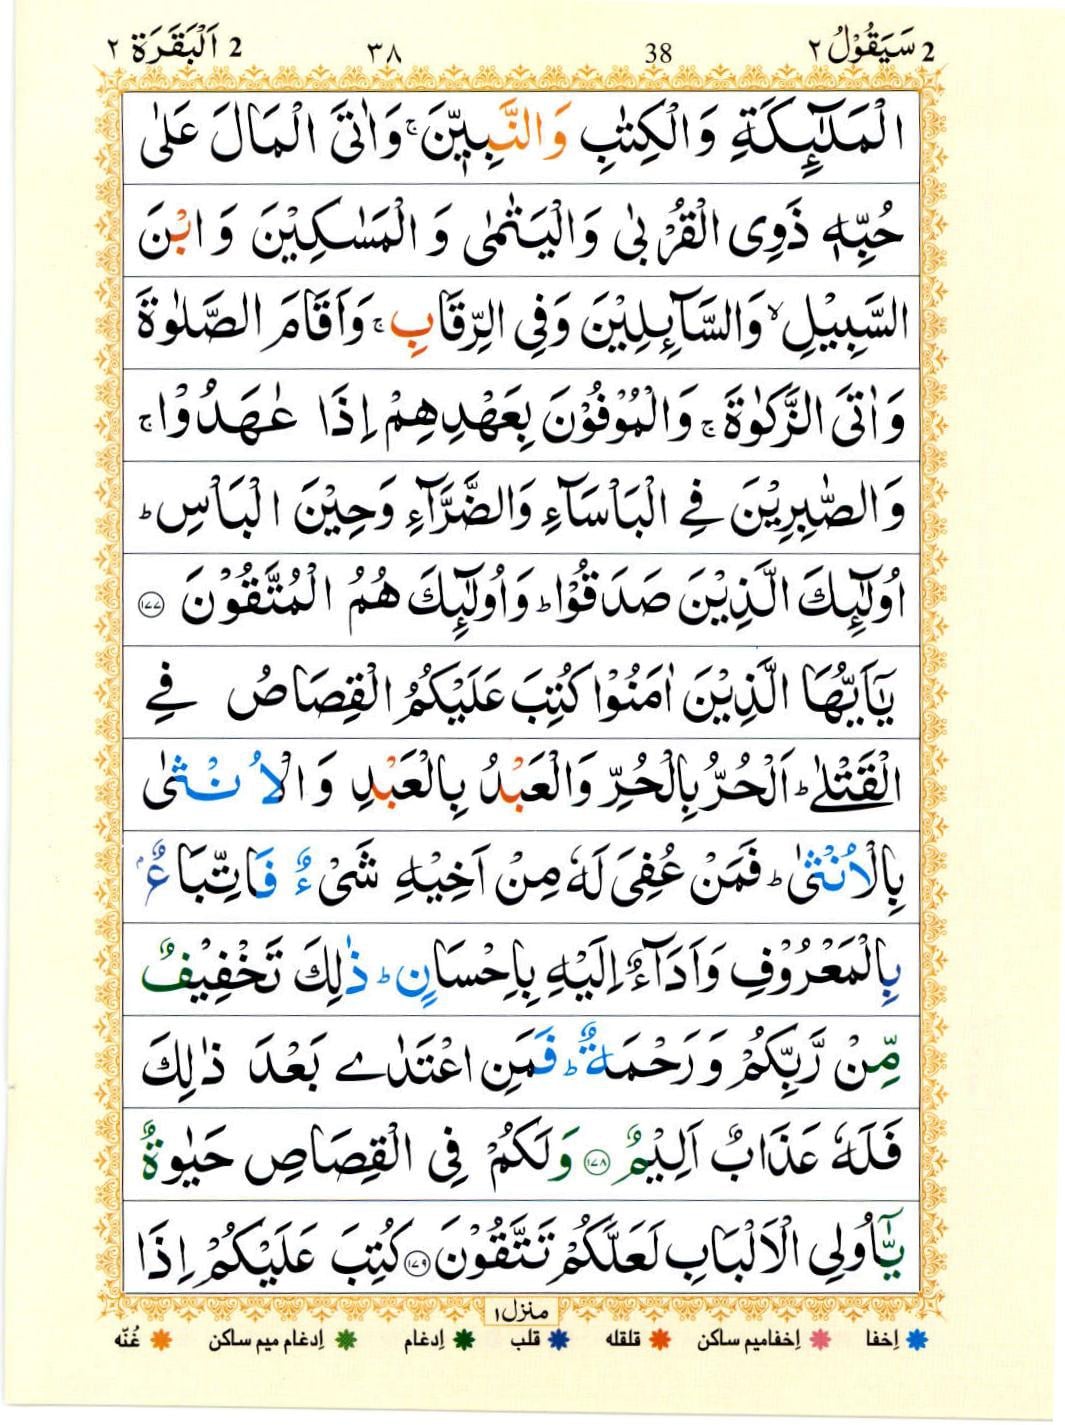 2 سَيَقُوْلُ ٢ 38 ٣٨ 2 اَلْبَقَرَة ٢
الْمَلٰٓئِكَةِ وَالْكِتٰبِ وَالنَّبِيّٖنَ ۚ وَاٰتَى الْمَالَ عَلٰى
حُبِّهٖ ذَوِى الْقُرْبٰى وَالْيَتٰمٰى وَ الْمَسٰكِيْنَ وَ ابْنَ
السَّبِيْلِ ۙ وَالسَّآئِلِيْنَ وَفِى الرِّقَابِ ۚ وَاَقَامَ الصَّلٰوةَ
وَ اٰتَى الزَّكٰوةَ ۚ وَالْمُوْفُوْنَ بِعَهْدِهِمْ اِذَا عٰهَدُوْا ۚ
وَ الصّٰبِرِيْنَ فِى الْبَاْسَآءِ وَالضَّرَّآءِ وَحِيْنَ الْبَاْسِ ؕ
اُولٰٓئِكَ الَّذِيْنَ صَدَقُوْا ؕ وَ اُولٰٓئِكَ هُمُ الْمُتَّقُوْنَ ١٧٧
يٰٓاَيُّهَا الَّذِيْنَ اٰمَنُوْا كُتِبَ عَلَيْكُمُ الْقِصَاصُ فِى
الْقَتْلٰى ؕ اَلْحُرُّ بِالْحُرِّ وَالْعَبْدُ بِالْعَبْدِ وَ الْاُنْثٰى
بِالْاُنْثٰى ؕ فَمَنْ عُفِىَ لَهٗ مِنْ اَخِيْهِ شَىْءٌ فَاتِّبَاعٌۢ
بِالْمَعْرُوْفِ وَ اَدَآءٌ اِلَيْهِ بِاِحْسَانٍ ؕ ذٰلِكَ تَخْفِيْفٌ
مِّنْ رَّبِّكُمْ وَ رَحْمَةٌ ؕ فَمَنِ اعْتَدٰى بَعْدَ ذٰلِكَ
فَلَهٗ عَذَابٌ اَلِيْمٌ ١٧٨ وَ لَكُمْ فِى الْقِصَاصِ حَيٰوةٌ
يّٰٓاُولِى الْاَلْبَابِ لَعَلَّكُمْ تَتَّقُوْنَ ١٧٩ كُتِبَ عَلَيْكُمْ اِذَا
منزل ١
اِخفا اِخفامیم ساکن قلقله قلب اِدغام اِدغام میم ساکن غُنّه